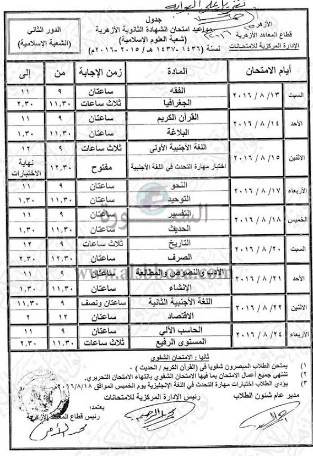 الأزهر
قطاع المعاهد الأزهرية
الإدارة المركزية للامتحانات
جدول
مواعيد امتحان الشهادة الثانوية الأزهرية
(شعبة العلوم الإسلامية)
لسنة (١٤٣٦ - ١٤٣٧ هـ / ٢٠١٥ - ٢٠١٦م)
الدور الثاني
(الشعبة الإسلامية)
أيام الامتحان المادة زمن الإجابة من إلى
السبت ٢٠١٦/٨/١٣ الفقه ساعتان ٩ ١١
الجغرافيا ثلاث ساعات ١١.٣٠ ٢.٣٠
الأحد ٢٠١٦/٨/١٤ القرآن الكريم ساعتان ٩ ١١
البلاغة ساعتان ١١.٣٠ ١.٣٠
الاثنين ٢٠١٦/٨/١٥ اللغة الأجنبية الأولى ثلاث ساعات ٩ ١٢
اختبار مهارة التحدث في اللغة الأجنبية مفتوح ١٢.٣٠ نهاية الاختبارات
الأربعاء ٢٠١٦/٨/١٧ النحو ساعتان ٩ ١١
التوحيد ساعتان ١١.٣٠ ١.٣٠
الخميس ٢٠١٦/٨/١٨ التفسير ساعتان ٩ ١١
الحديث ساعتان ١١.٣٠ ١.٣٠
السبت ٢٠١٦/٨/٢٠ التاريخ ثلاث ساعات ٩ ١٢
الصرف ساعتان ١٢.٣٠ ٢.٣٠
الأحد الأدب والنصوص والمطالعة ساعتان ٩ ١١
الإنشاء ساعتان ١١.٣٠ ١.٣٠
الاثنين ٢٠١٦/٨/٢٢ اللغة الأجنبية الثانية ساعتان ونصف ٩ ١١.٣٠
الاقتصاد ساعتان ١٢ ٢
الأربعاء ٢٠١٦/٨/٢٤ الحاسب الآلي ساعتان ٩ ١١
المستوى الرفيع ثلاث ساعات ١١.٣٠ ٢.٣٠
ثانيا : الامتحان الشفوي
١) يمتحن الطلاب المبصرون شفويا في (القرآن الكريم / الحديث )
٢) تنتهي جميع أعمال الامتحان بما فيها الامتحان الشفوي بانتهاء الامتحان التحريري.
٣) يؤدي الطلاب اختبارات مهارة التحدث في اللغة الإنجليزية يوم الخميس الموافق ٢٠١٦/٨/١٨م
مدير عام شئون الطلاب
رئيس الإدارة المركزية للامتحانات
يعتمد،
رئيس قطاع المعاهد الأزهرية